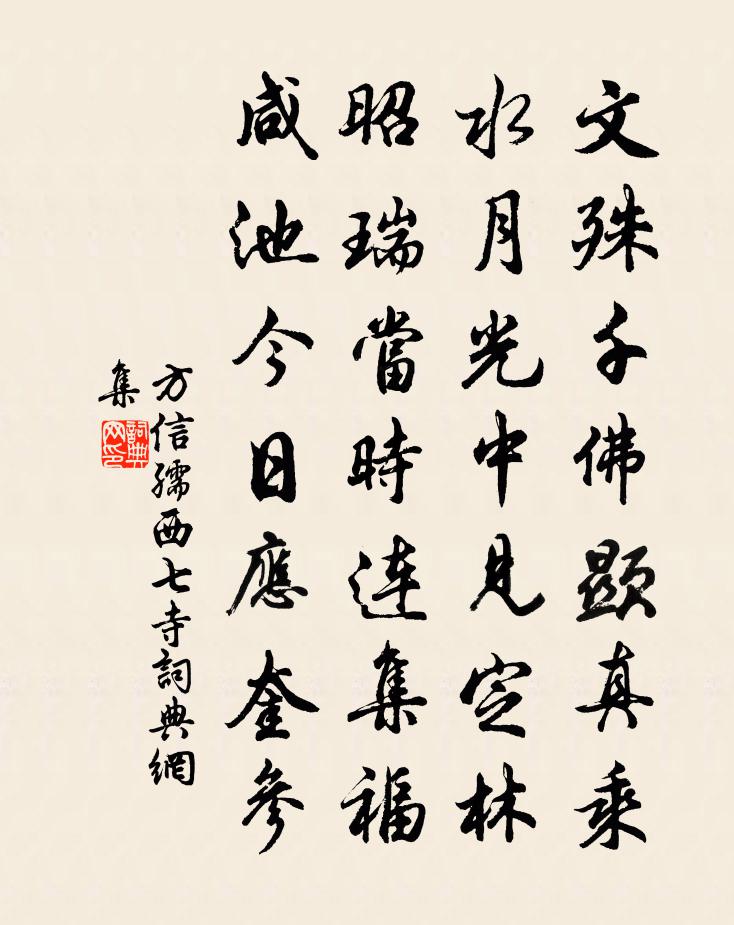 文殊千佛顯真乘
水月光中見定林
昭瑞當時連集福
咸池今日應奎參
方信孺西七寺詞典網
集
詞典网印